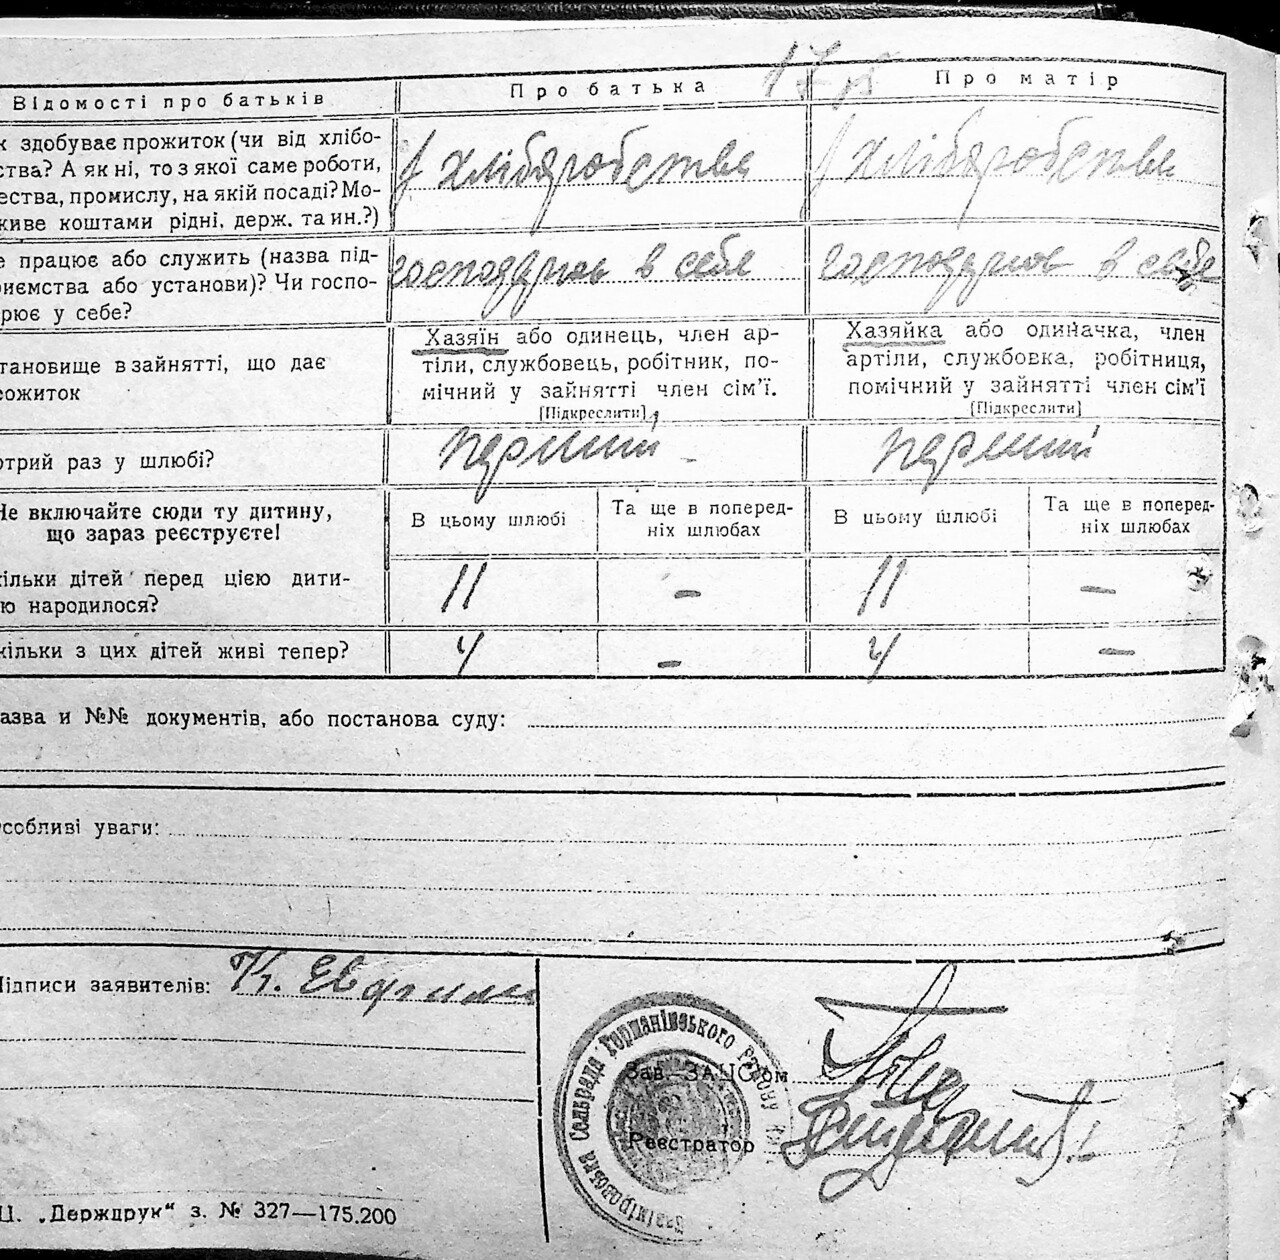 17
Відомості про батьків
Про батька
Про матір
к здобуває прожиток (чи від хлібо-
ства? А як ні, то з якої саме роботи,
ества, промислу, на якій посаді? Мо-
живе коштами рідні, держ. та ин.?)
У хліборобстве
У хліборобстве
е працює або служить (назва під-
риємства або установи)? Чи госпо-
рює у себе?
господарюв в себе
господарюв в себе
тановище в зайнятті, що дає
рожиток
Хазяїн або одинець, член ар-
тіли, службовець, робітник, по-
мічний у зайнятті член сім'ї.
[Підкреслити]
Хазяйка або одиначка, член
артіли, службовка, робітниця,
помічний у зайнятті член сім'ї
[Підкреслити]
отрий раз у шлюбі?
перший
перший
Не включайте сюди ту дитину,
що зараз реєструєте!
В цьому шлюбі
Та ще в поперед-
ніх шлюбах
В цьому шлюбі
Та ще в поперед-
ніх шлюбах
ільки дітей перед цією дити-
ю народилося?
11
–
11
–
кільки з цих дітей живі тепер?
4
–
4
–
азва и №№ документів, або постанова суду:
Особливі уваги:
Підписи заявителів:
К.
Сольрада Горщанівського району
Зав. ЗАЦСом
Реєстратор
Ц. „Держдрук“ з. № 327—175.200